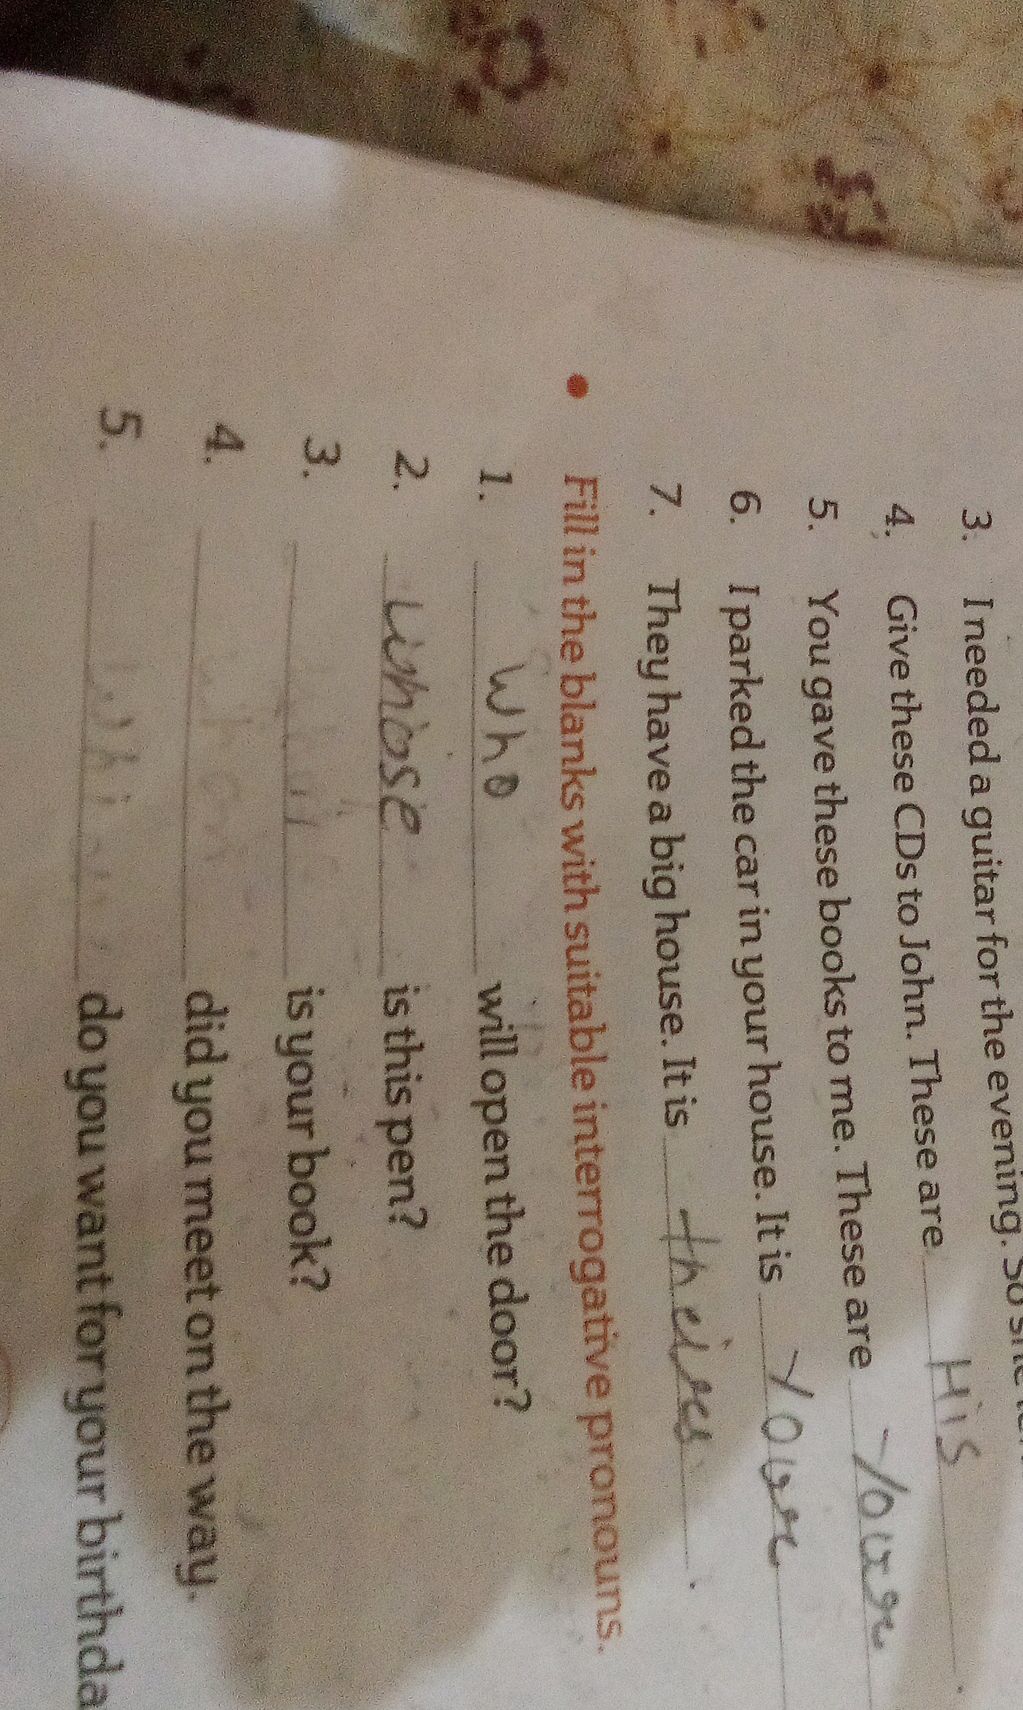 3. I needed a guitar for the evening. So she
4. Give these CDs to John. These are His.
5. You gave these books to me. These are Your
6. I parked the car in your house. It is Your
7. They have a big house. It is theires.
• Fill in the blanks with suitable interrogative pronouns.
1. Who will open the door?
2. Whose is this pen?
3. is your book?
4. did you meet on the way.
5. do you want for your birthda